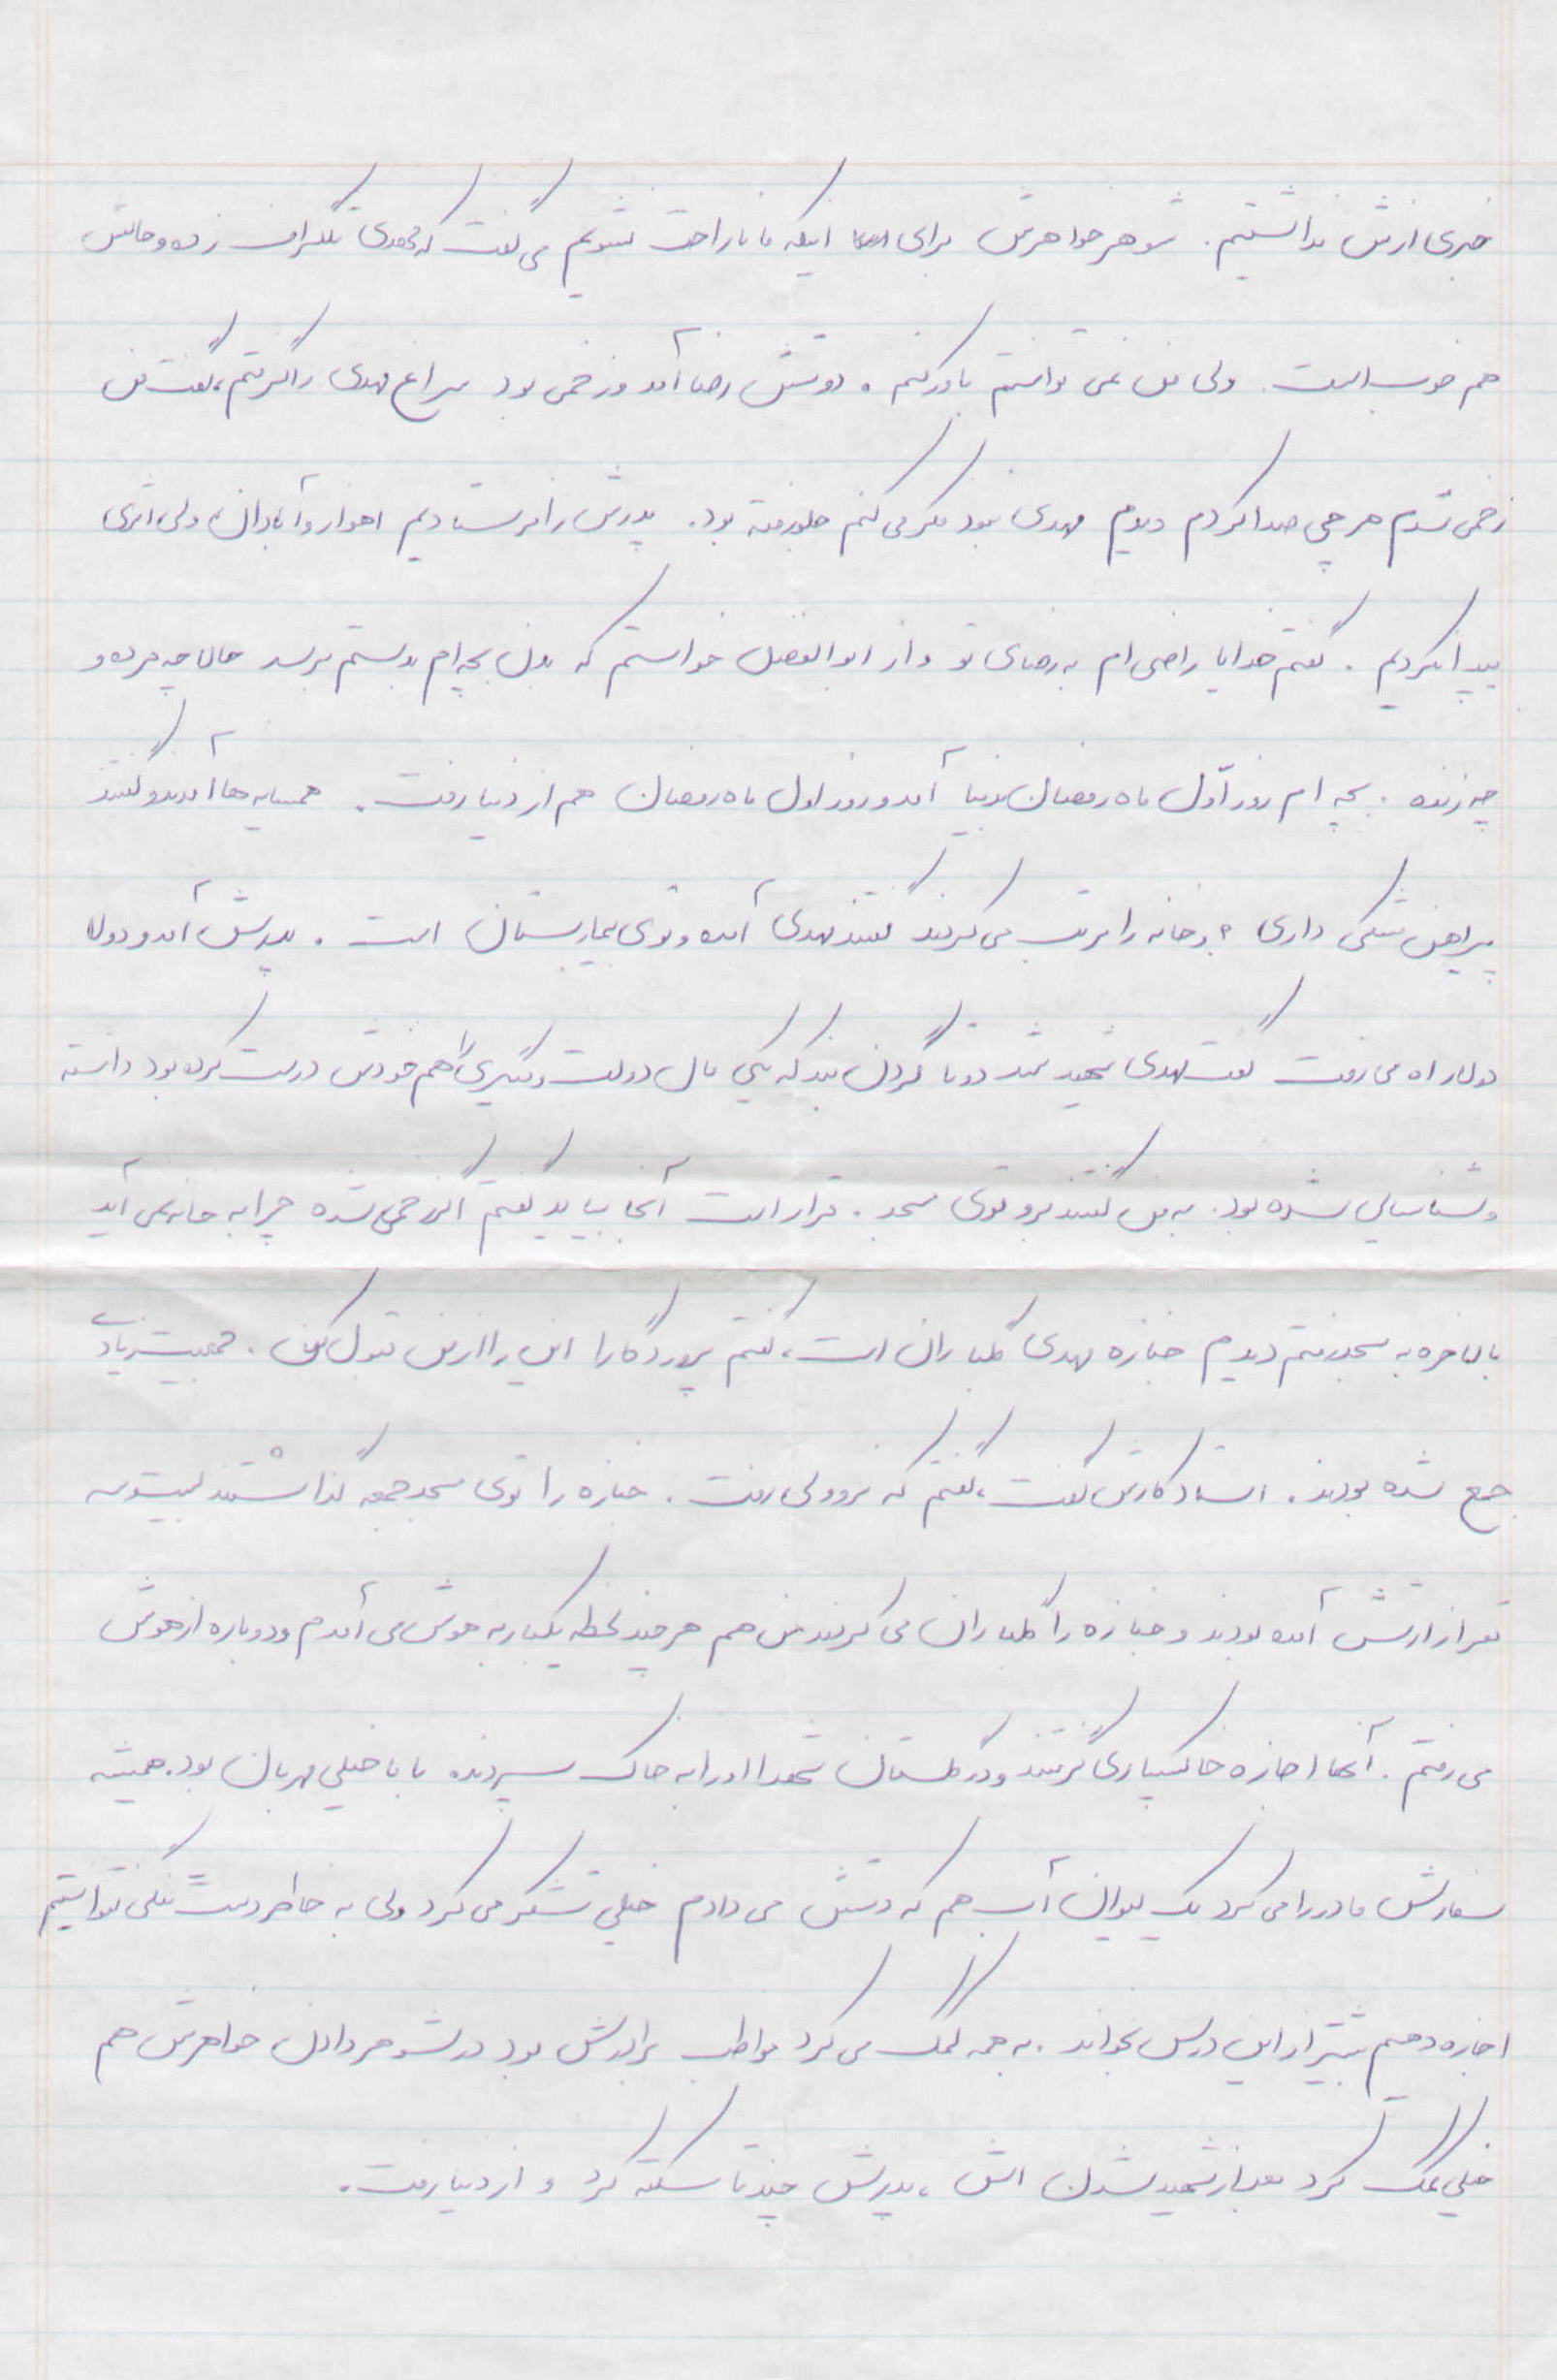 خبری ازش نداشتیم. شوهر خواهرش برای اینکه ما ناراحت نشویم می گفت که مهدی تلگراف زده و حالش
هم خوب است. ولی من نمی توانستم باور کنم. دوستش رضا آمد و زخمی بود سراغ مهدی را گرفتم، گفت من
زخمی شدم هر چی صدا کردم دیدم مهدی نبود فکر می کنم جلو رفته بود. پدرش را فرستادیم اهواز و آبادان، ولی اثری
پیدا نکردیم. گفتم خدایا راضی ام به رضای تو و از ابوالفضل خواستم که بدن بچه ام بدستم برسد حالا چه مرده و
چه زنده. بچه ام روز اّول ماه رمضان بدنیا آمد و روز اول ماه رمضان هم از دنیا رفت. همسایه ها آمدند و گفتند
پیراهن مشکی داری؟ و خانه را مرتب می کردند گفتند مهدی آمده و توی بیمارستان است. پدرش آمد و دولا
دولا راه می رفت گفت مهدی شهید شد دو تا گردن بند که یکی مال دولت و دیگری را هم خودش درست کرده بود داشته
و شناسایی شده بود. به من گفتند برو توی مسجد. قرار است آنجا بیاید گفتم اگر زخمی شده چرا به خانه نمی آید
بالاخره به مسجد رفتم دیدم جنازه مهدی گلباران است، گفتم پروردگارا این را از من قبول کن. جمعیت زیادی
جمع شده بودند. استاد کارش گفت، گفتم که نرو ولی رفت. جنازه را توی مسجد جمعه گذاشتند بیست و سه
نفر از ارتش آمده بودند و جنازه را گلباران می کردند من هم هر چند لحظه یکبار به هوش می آمدم و دوباره از هوش
می رفتم. آنها اجازه خاکسپاری گرفتند و در گلستان شهدا او را به خاک سپردند. با ما خیلی مهربان بود. همیشه
سفارش مادر را می کرد یک لیوان آب هم که دستش می دادم خیلی تشکر می کرد ولی به خاطر دست تنگی نتوانستیم
اجازه دهیم بیشتر از این درس بخواند. به همه کمک می کرد مواظب برادرش بود در شوهر دادن خواهرش هم
خیلی کمک کرد بعد از شهید شدن اش، پدرش چند تا سکته کرد و از دنیا رفت.